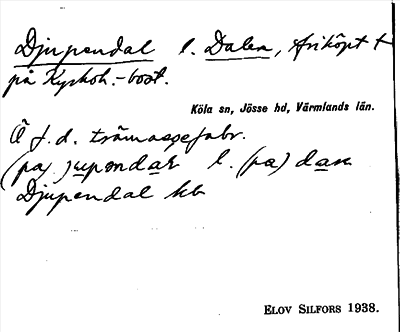 Djupendal l. Dalen, friköpt t
på Kyrkoh.-bost.
Köla sn, Jösse hd, Värmlands län.
Ä f.d. trämassefabr.
(pa) jupendar l. (pa) dan
Djupendal kb
ELOV SILFORS 1938.